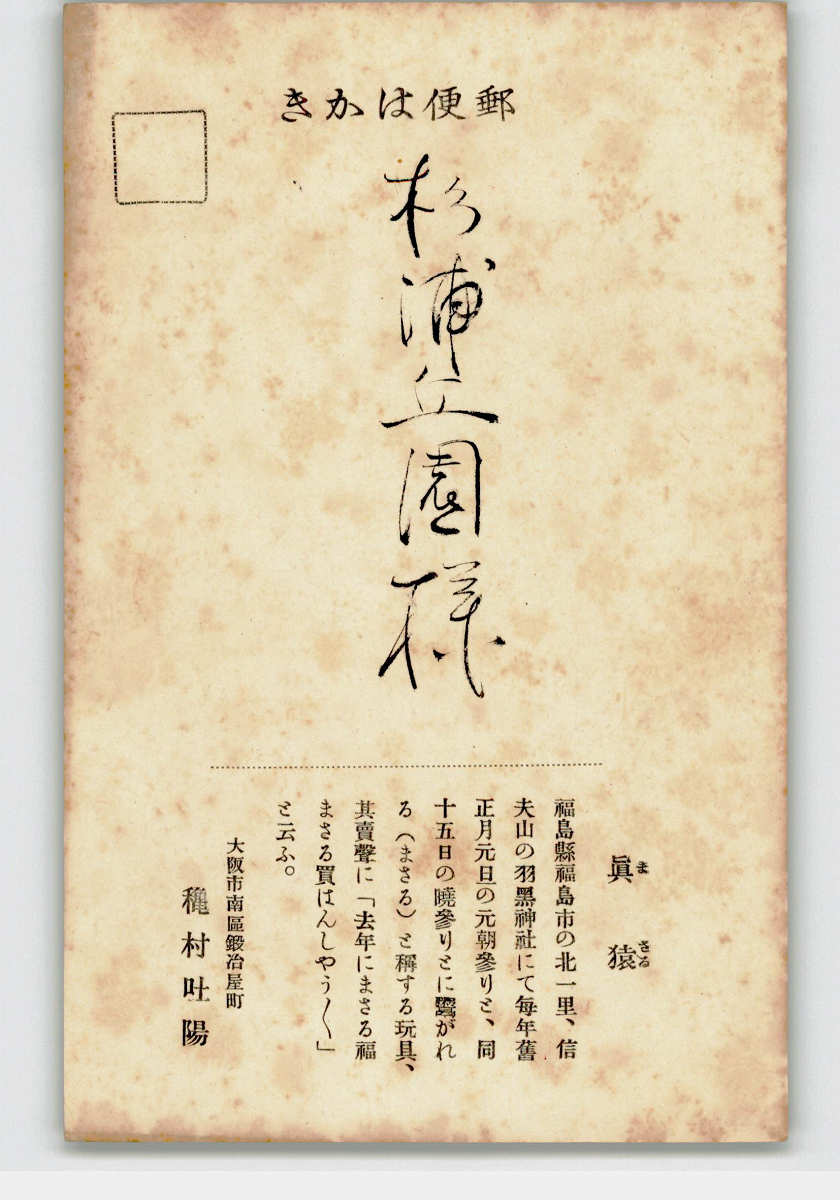 郵便はかき
杉浦丘園様
眞猿
まさる
福島縣福島市の北一里、信
夫山の羽黑神社にて每年舊
正月元旦の元朝參りと、同
十五日の曉參りとに鬻がれ
る（まさる）と稱する玩具、
其賣聲に「去年にまさる福
まさる買はんしやう〳〵」
と云ふ。
大阪市南區鍛冶屋町
穐村吐陽